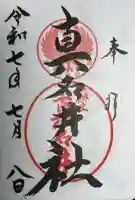 奉拝
真名井社
令和七年
七月
八日